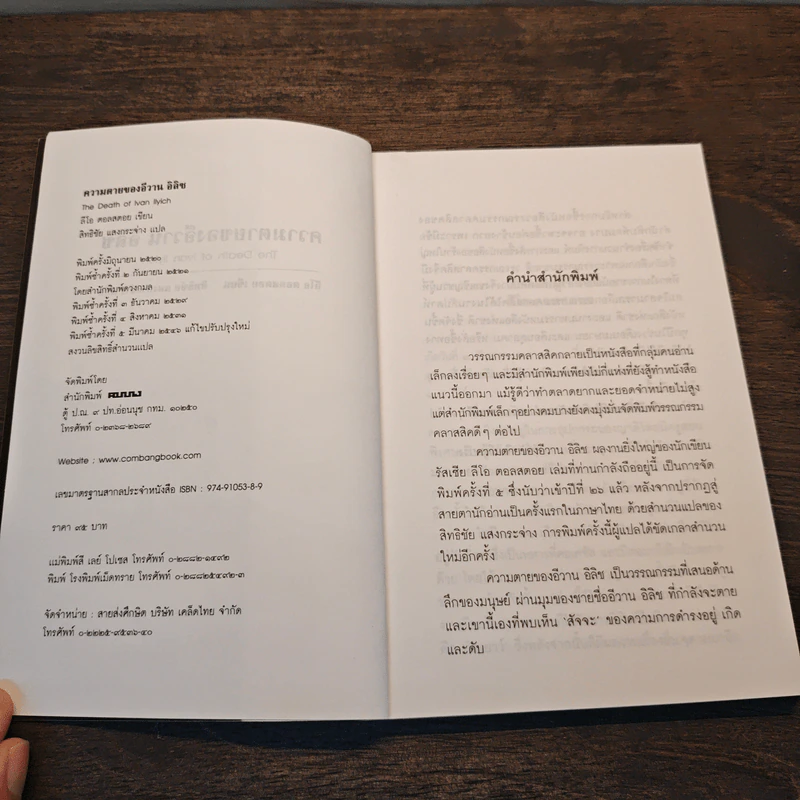 ความตายของอีวาน อิลิช
The Death of Ivan Ilyich
ลีโอ ตอลสตอย เขียน
สิทธิชัย แสงกระจ่าง แปล
พิมพ์ครั้งมิถุนายน ๒๕๒๐
พิมพ์ซ้ำครั้งที่ ๒ กันยายน ๒๕๒๑
โดยสำนักพิมพ์ดวงกมล
พิมพ์ซ้ำครั้งที่ ๓ ธันวาคม ๒๕๒๙
พิมพ์ซ้ำครั้งที่ ๔ สิงหาคม ๒๕๓๑
พิมพ์ซ้ำครั้งที่ ๕ มีนาคม ๒๕๔๖ แก้ไขปรับปรุงใหม่
สงวนลิขสิทธิ์สำนวนแปล
จัดพิมพ์โดย
สำนักพิมพ์ คมบาง
ตู้ ป.ณ. ๙ ปท.อ่อนนุช กทม. ๑๐๒๕๐
โทรศัพท์ ๐-๒๓๖๘-๒๖๘๙
Website : www.combangbook.com
เลขมาตรฐานสากลประจำหนังสือ ISBN : 974-91053-8-9
ราคา ๙๕ บาท
แม่พิมพ์สี เลย์ โปเซส โทรศัพท์ ๐-๒๘๘๒-๑๔๙๒
พิมพ์ โรงพิมพ์เม็ดทราย โทรศัพท์ ๐-๒๘๘๒๕๔๙๒-๓
จัดจำหน่าย : สายส่งศึกษิต บริษัท เคล็ดไทย จำกัด
โทรศัพท์ ๐-๒๒๒๕-๙๕๓๖-๔๐
คำนำสำนักพิมพ์
วรรณกรรมคลาสสิคกลายเป็นหนังสือที่กลุ่มคนอ่าน
เล็กลงเรื่อยๆ และมีสำนักพิมพ์เพียงไม่กี่แห่งที่ยังสู้ทำหนังสือ
แนวนี้ออกมา แม้รู้ดีว่าทำตลาดยากและยอดจำหน่ายไม่สูง
แต่สำนักพิมพ์เล็กๆ อย่างคมบางยังคงมุ่งมั่นจัดพิมพ์วรรณกรรม
คลาสสิคดีๆ ต่อไป
ความตายของอีวาน อิลิช ผลงานยิ่งใหญ่ของนักเขียน
รัสเซีย ลีโอ ตอลสตอย เล่มที่ท่านกำลังถืออยู่นี้ เป็นการจัด
พิมพ์ครั้งที่ ๕ ซึ่งนับว่าเข้าปีที่ ๒๖ แล้ว หลังจากปรากฏสู่
สายตานักอ่านเป็นครั้งแรกในภาษาไทย ด้วยสำนวนแปลของ
สิทธิชัย แสงกระจ่าง การพิมพ์ครั้งนี้ผู้แปลได้ขัดเกลาสำนวน
ใหม่อีกครั้ง
ความตายของอีวาน อิลิช เป็นวรรณกรรมที่เสนอด้าน
ลึกของมนุษย์ ผ่านมุมของชายชื่ออีวาน อิลิช ที่กำลังจะตาย
และเขานี้เองที่พบเห็น 'สัจจะ' ของความการดำรงอยู่ เกิด
และดับ